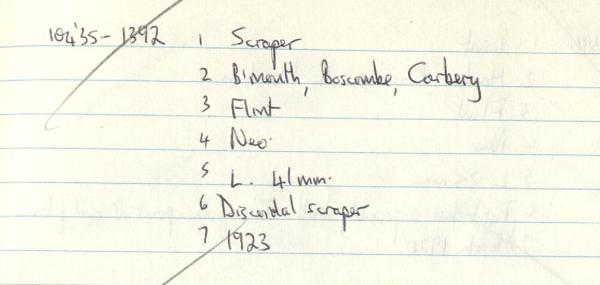 104'35 - 1392 1 Scraper
2 B'mouth, Boscombe, Carbery
3 Flint
4 Neo.
5 L. 41mm.
6 Discoidal scraper
7 1923